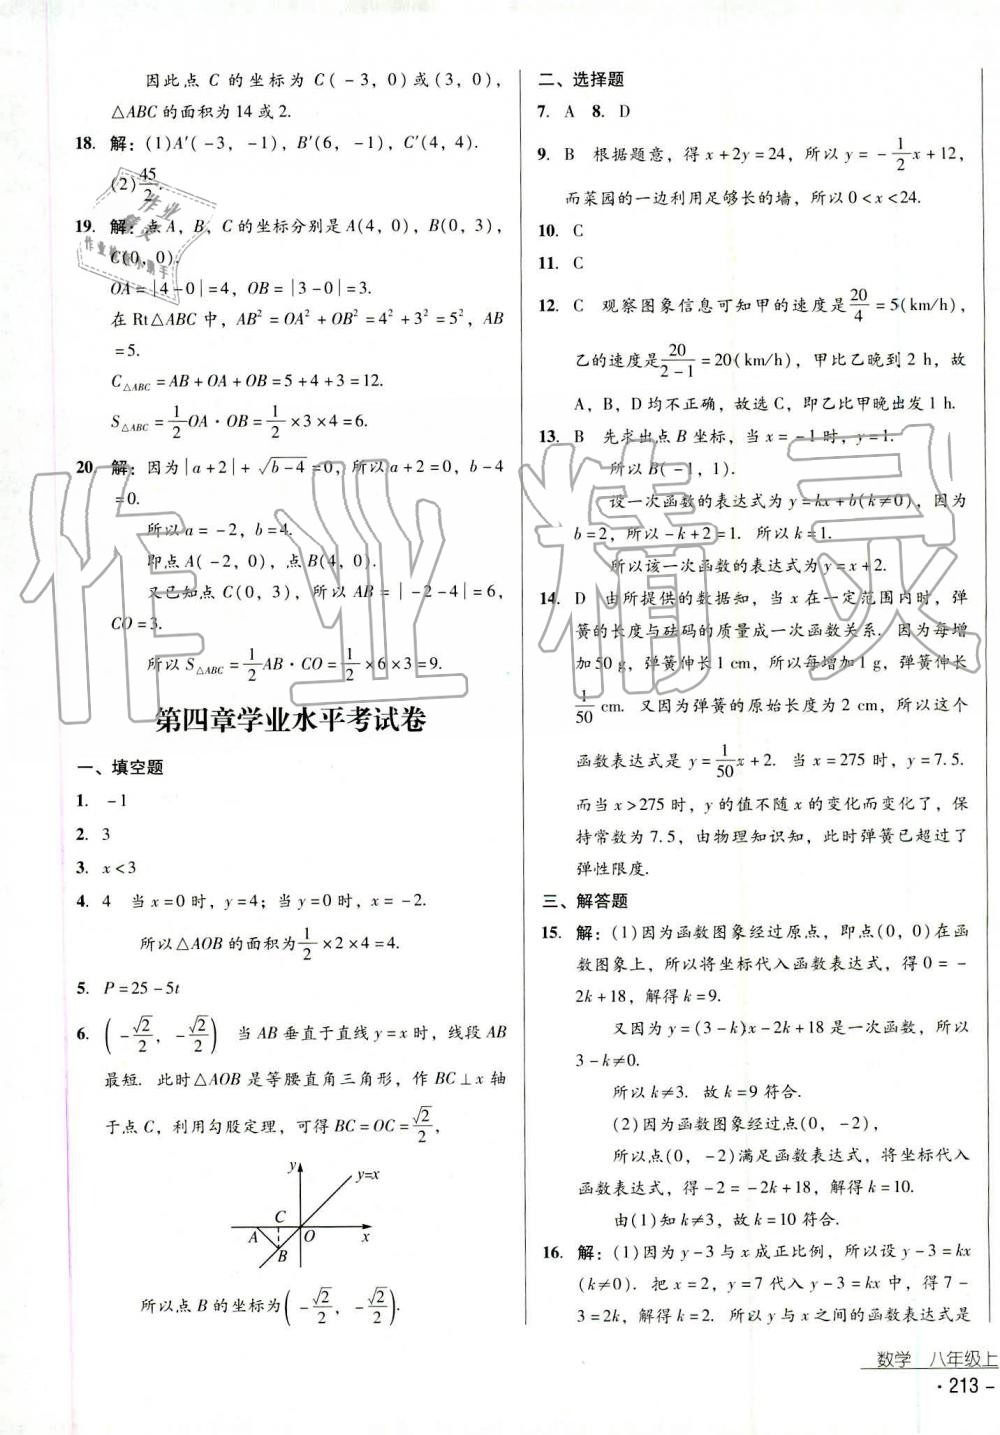 因此点 C 的坐标为 C(-3, 0)或(3, 0),
△ABC 的面积为 14 或 2.
18. 解: (1)A′(-3, -1), B′(6, -1), C′(4, 4).
(2)45/2.
19. 解: 点 A, B, C 的坐标分别是 A(4, 0), B(0, 3),
C(0, 0).
OA=|4-0|=4, OB=|3-0|=3.
在 Rt△ABC 中, AB²=OA²+OB²=4²+3²=5², AB
=5.
C△ABC=AB+OA+OB=5+4+3=12.
S△ABC=1/2OA·OB=1/2×3×4=6.
20. 解: 因为|a+2|+√(b-4)=0, 所以 a+2=0, b-4
=0.
所以 a=-2, b=4.
即点 A(-2, 0), 点 B(4, 0).
又已知点 C(0, 3), 所以 AB=|-2-4|=6,
CO=3.
所以 S△ABC=1/2AB·CO=1/2×6×3=9.
第四章学业水平考试卷
一、填空题
1. -1
2. 3
3. x<3
4. 4 当 x=0 时, y=4; 当 y=0 时, x=-2.
所以△AOB 的面积为1/2×2×4=4.
5. P=25-5t
6. (-√2/2, -√2/2) 当 AB 垂直于直线 y=x 时, 线段 AB
最短. 此时△AOB 是等腰直角三角形, 作 BC⊥x 轴
于点 C, 利用勾股定理, 可得 BC=OC=√2/2,
y
y=x
C
A
O
x
B
所以点 B 的坐标为(-√2/2, -√2/2).
二、选择题
7. A 8. D
9. B 根据题意, 得 x+2y=24, 所以 y=-1/2x+12,
而菜园的一边利用足够长的墙, 所以 0<x<24.
10. C
11. C
12. C 观察图象信息可知甲的速度是20/4=5(km/h),
乙的速度是20/(2-1)=20(km/h), 甲比乙晚到 2 h, 故
A, B, D 均不正确, 故选 C, 即乙比甲晚出发 1 h.
13. B 先求出点 B 坐标, 当 x=-1 时, y=1.
所以 B(-1, 1).
设一次函数的表达式为 y=kx+b(k≠0), 因为
b=2, 所以 -k+2=1. 所以 k=1.
所以该一次函数的表达式为 y=x+2.
14. D 由所提供的数据知, 当 x 在一定范围内时, 弹
簧的长度与砝码的质量成一次函数关系. 因为每增
加 50 g, 弹簧伸长 1 cm, 所以每增加 1 g, 弹簧伸长
1/50 cm. 又因为弹簧的原始长度为 2 cm, 所以这个
函数表达式是 y=1/50x+2. 当 x=275 时, y=7.5.
而当 x>275 时, y 的值不随 x 的变化而变化了, 保
持常数为 7.5, 由物理知识知, 此时弹簧已超过了
弹性限度.
三、解答题
15. 解: (1)因为函数图象经过原点, 即点(0, 0)在函
数图象上, 所以将坐标代入函数表达式, 得 0=-
2k+18, 解得 k=9.
又因为 y=(3-k)x-2k+18 是一次函数, 所以
3-k≠0.
所以 k≠3. 故 k=9 符合.
(2)因为函数图象经过点(0, -2),
所以点(0, -2)满足函数表达式, 将坐标代入
函数表达式, 得 -2=-2k+18, 解得 k=10.
由(1)知 k≠3, 故 k=10 符合.
16. 解: (1)因为 y-3 与 x 成正比例, 所以设 y-3=kx
(k≠0). 把 x=2, y=7 代入 y-3=kx 中, 得 7-
3=2k, 解得 k=2. 所以 y 与 x 之间的函数表达式是
数学 八年级上
·213-
作业精灵